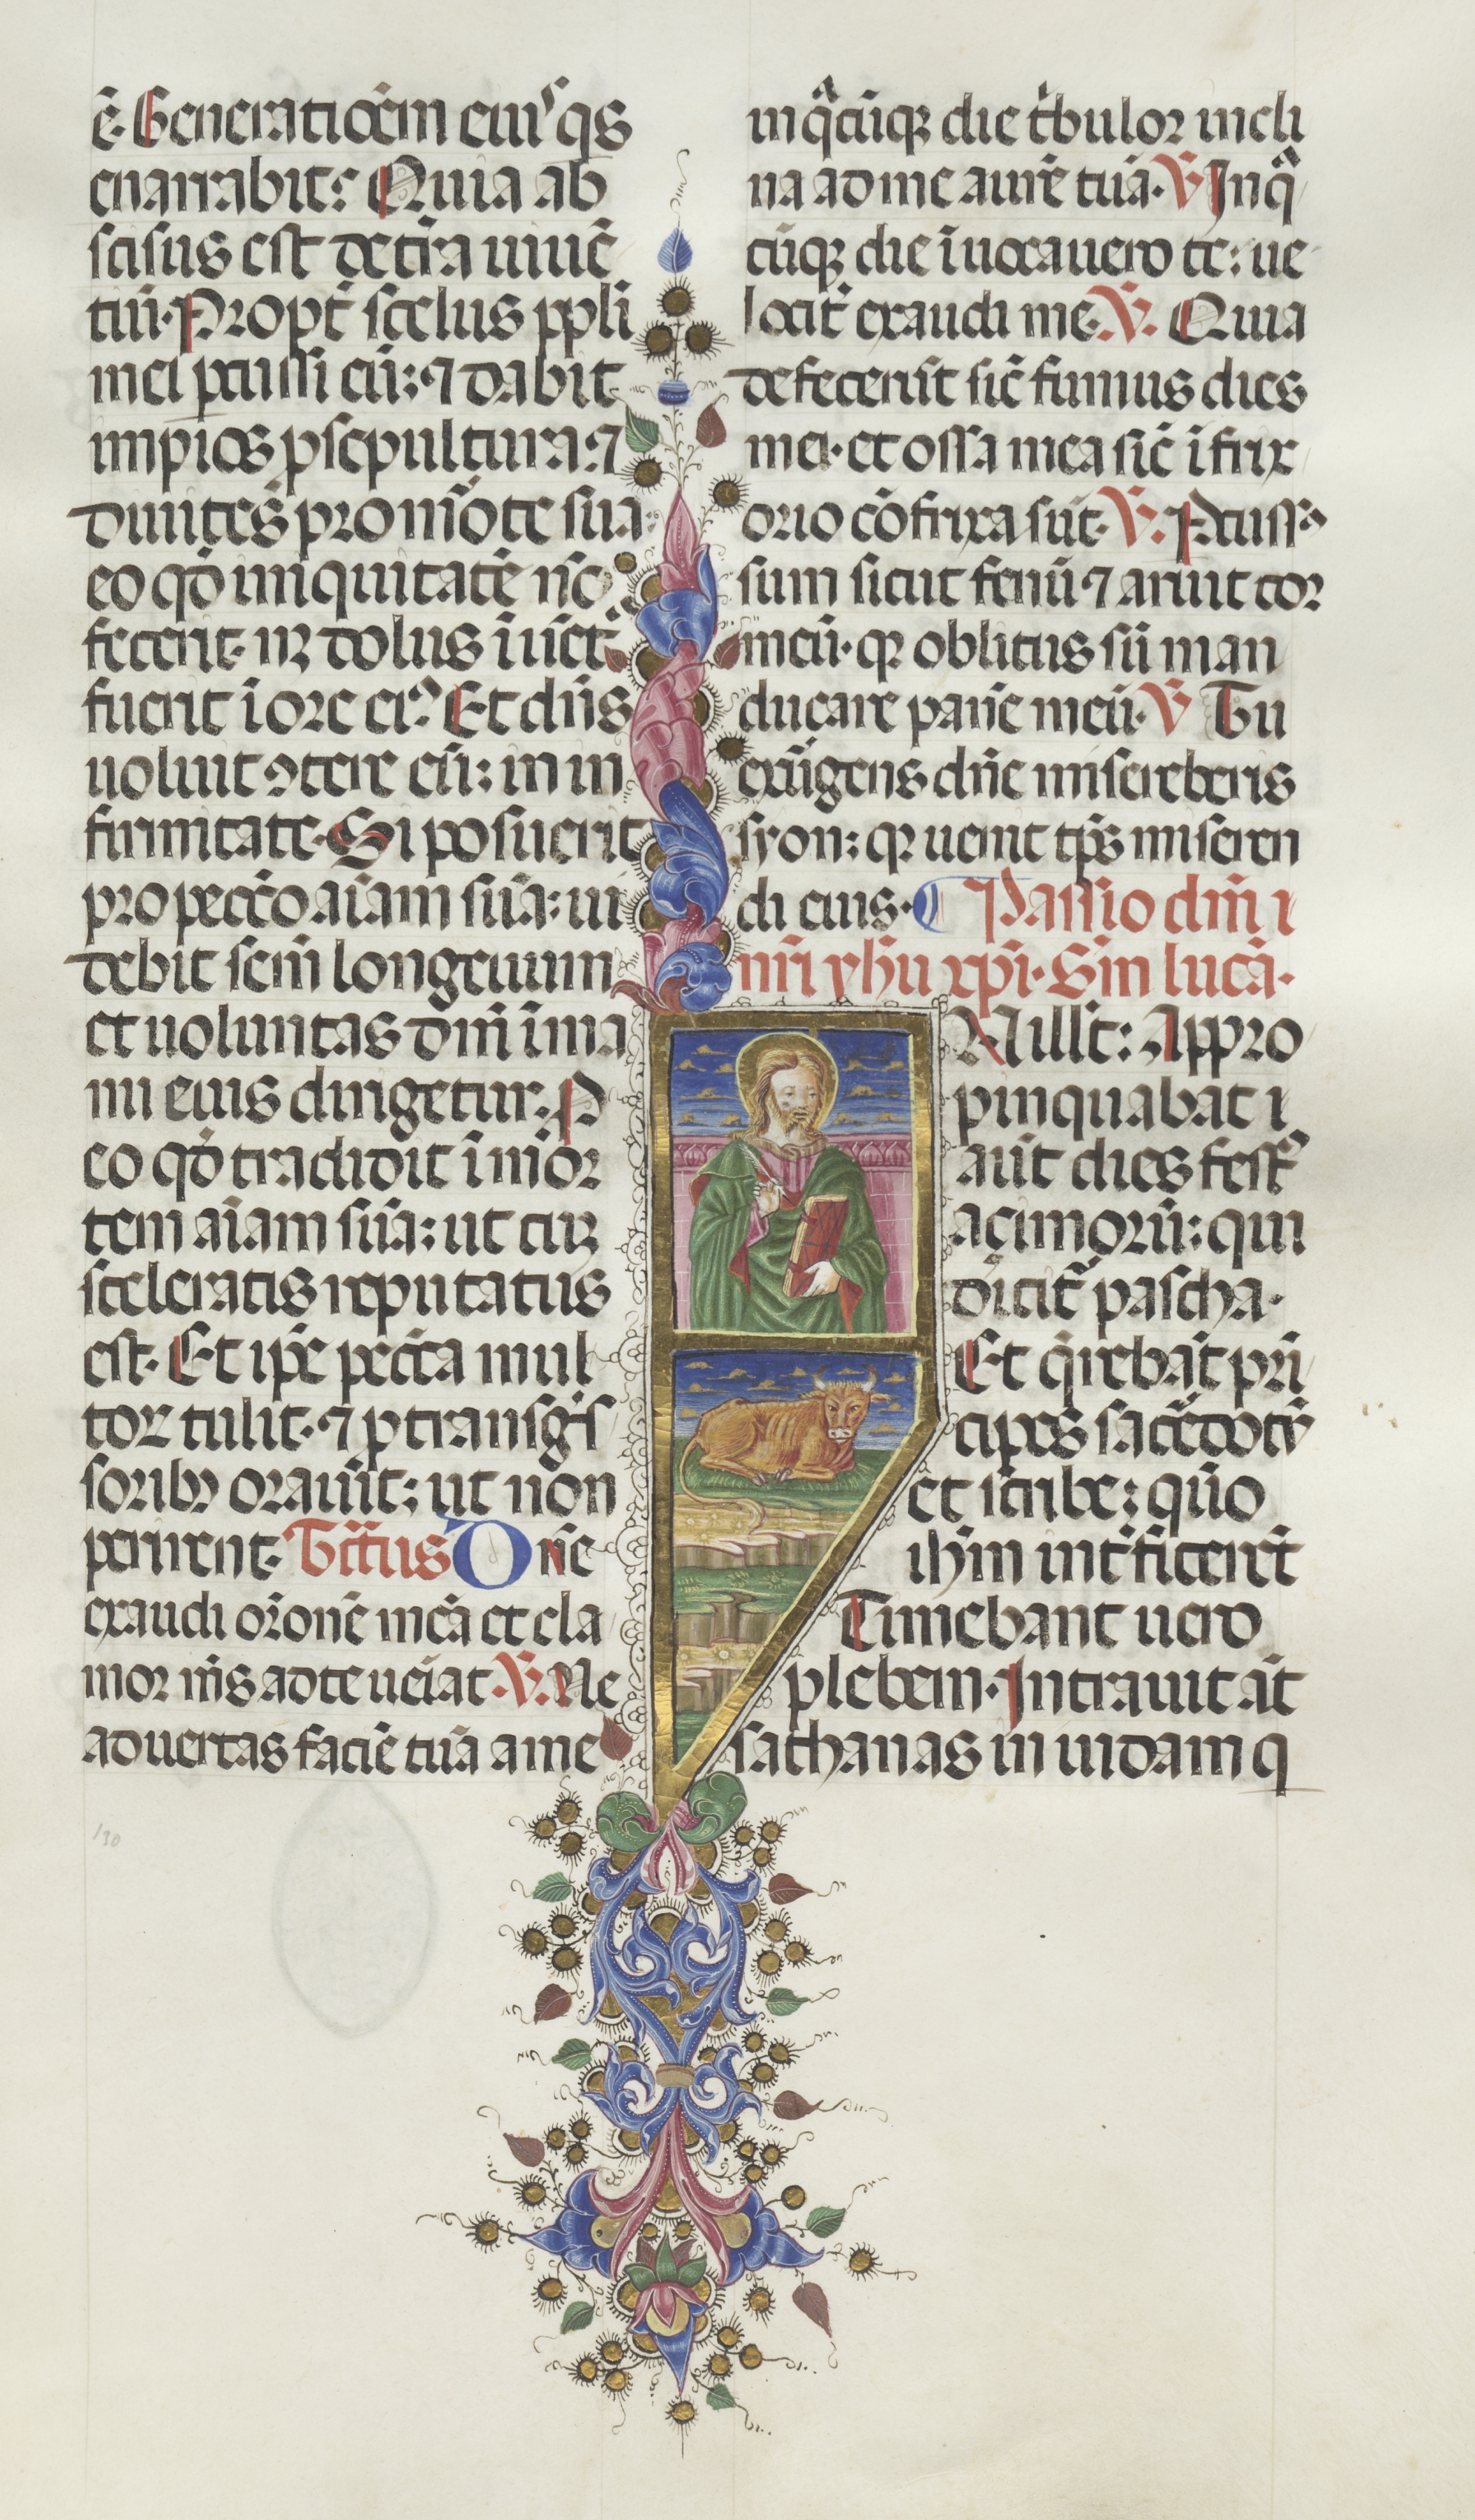 ē. Generatiōem eiuˢ qͥs
enarrabit: Quia ab
scisus est de t̄ra uiuē
tiū. Propt̄ scelus ppl̄i
mei ꝑcussi eū: ⁊ dabit
impios ꝓ sepultura: ⁊
diuites pro m̄ote sua:
eo qd̄ iniquitatē nō
fecerit. neqꝫ dolus īuēt᷑
fuerit ī ore eiꝰ. Et dn̄s
uoluit ꝯtere eū: in in
firmitate. Si posuerit
pro pecc̄o aīam suā: ui
debit sem̄ longeuum
et uoluntas dn̄i ī ma
nu eius dirigetur. P
eo qd̄ tradidit ī mor
tem aīam suā: ut cū
sceleratis reputatus
est. Et ip̄e pecc̄a mul
tor tulit. ⁊ ꝓ transgͥs
soribꝫ orauit: ut non
perirent. Tr̄ctus Dn̄e
exaudi or̄onē meā et cla
mor m̄s ad te ueīat. V. Ne
aduertas faciē tuā a me
in qͣcūqꝫ die t̄bulor incli
na ad me aurē tuā. V Inqͣ
cūqꝫ die īuocauero te: ue
locit̄ exaudi me. V. Quia
defecer̄ūt sic̄ fumus dies
mei. et ossa mea sic̄ ī frix
orio cōfrixa sūt. V. Ꝑcussꝰ
sum sicut fenū ⁊ aruit cor
meū. qꝛ oblitus sū man
ducare panē meū. V Tu
exurgens dn̄e misereberis
syon: qꝛ uenit tp̄s miseren
di eius. Passio dn̄i
nr̄i yhū xp̄i. Sm̄ lucā.
N ill̄ t: Appro
pinquabat
aūt dies festꝰ
açimorū: qui
dicit̄ pascha.
Et q̄rebāt prī
cipes sac̄dotū
et scribe: quō
ihm̄ int̄ficerēt
Timebant uero
plebem. Intrauit aūt
sathanas in iudam q
130